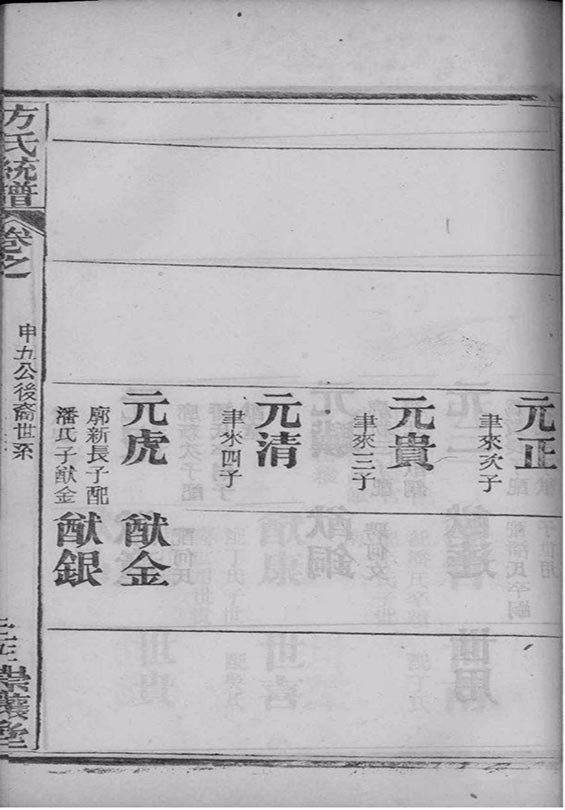 元正
聿來次子
元貴
聿來三子
元清
聿來四子
元虎
廓新長子配
潘氏子猷金
猷金
猷銀
方氏統譜
卷之一
申五公後裔世系